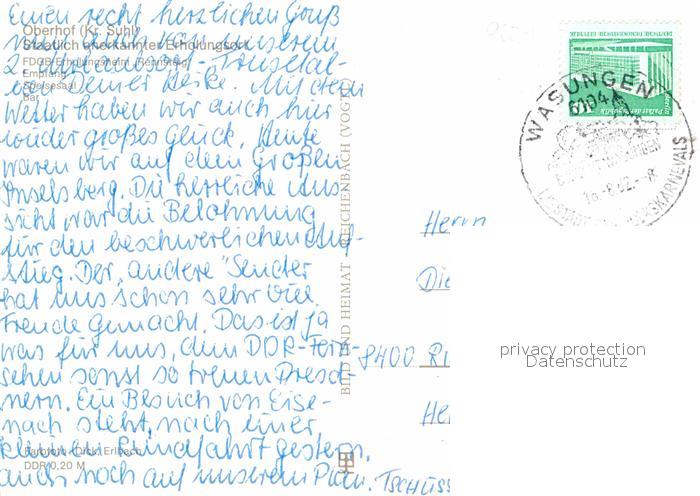 Einen recht herzlichen Gruß
Oberhof (Kr. Suhl)
Staatlich anerkannter Erholungsort
FDGB-Erholungsheim "Rennsteig"
Empfang
Speisesaal
Bar
Mit dem
Wetter haben wir auch hier
wieder großes Glück. Heute
waren wir auf dem Großen
Inselsberg. Die herrliche Aus-
sicht war die Belohnung
für den beschwerlichen Auf-
stieg. Der "andere" Sender
hat uns schon sehr viel
Freude gemacht. Das ist ja
was für uns, dem DDR-Fern-
sehen sonst so treuen Dresd-
nern. Ein Besuch von Eise-
nach steht, nach einer
kleinen Rundfahrt gestern,
auch noch auf unserem Plan. Tschüss
Farbfoto: Dick, Erlbach
DDR 0,20 M
BILD UND HEIMAT REICHENBACH (VOGTL)
DEUTSCHE DEMOKRATISCHE REPUBLIK
Palast der Republik
Berlin
10
WASUNGEN
6104
Herrn
Die
8400 Ri
He
privacy protection
Datenschutz